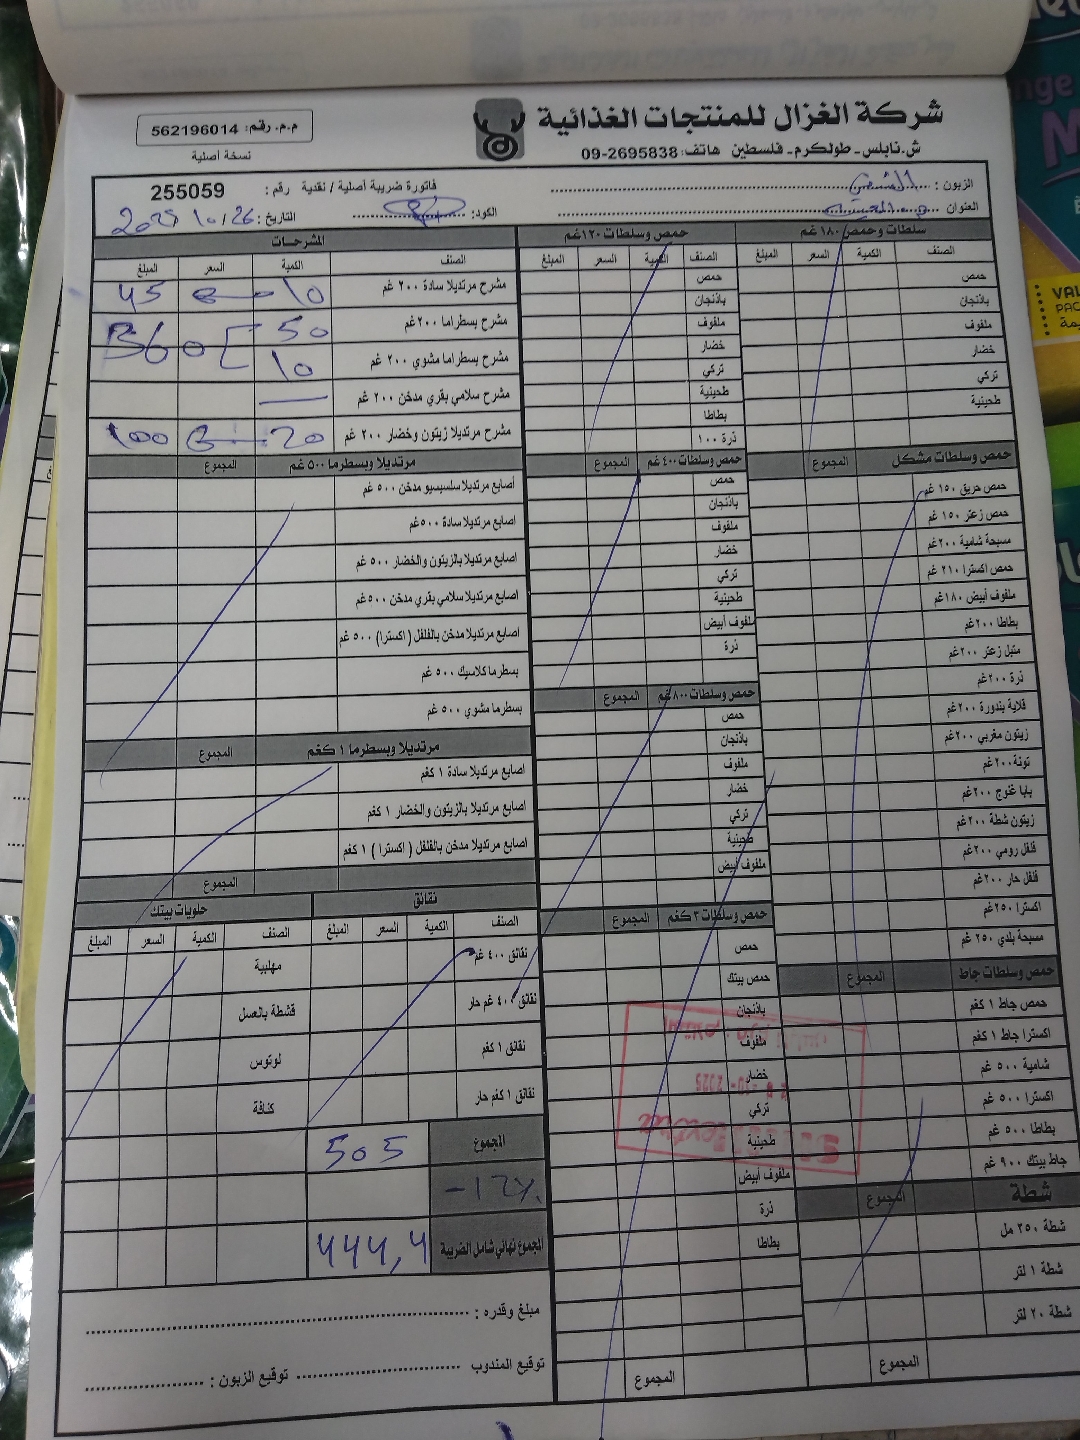 شركة الغزال للمنتجات الغذائية
ش.نابلس - طولكرم - فلسطين هاتف: 09-2695838
م.م. رقم: 562196014
نسخة أصلية
الزبون :
فاتورة ضريبة أصلية / نقدية رقم : 255059
العنوان
الكود:
التاريخ: 26 / 10 / 2025
سلطات وحمص ١٨٠ غم
الصنف الكمية السعر المبلغ
حمص
باذنجان
ملفوف
خضار
تركي
طحينية
حمص وسلطات مشكل المجموع
حمص حريق ١٥٠ غم
حمص زعتر ١٥٠ غم
مسبحة شامية ٢٠٠غم
حمص اكسترا ٢١٠ غم
ملفوف أبيض ١٨٠غم
بطاطا ٢٠٠غم
متبل زعتر ٢٠٠غم
ذرة ٢٠٠غم
قلاية بندورة ٢٠٠غم
زيتون مغربي ٢٠٠غم
تونة ٢٠٠غم
بابا غنوج ٢٠٠غم
زيتون شطة ٢٠٠غم
فلفل رومي ٢٠٠غم
فلفل حار ٢٠٠غم
اكسترا ٢٥٠غم
مسبحة بلدي ٢٥٠ غم
حمص وسلطات جاط المجموع
حمص جاط ١ كغم
اكسترا جاط ١ كغم
شامية ٥٠٠ غم
اكسترا ٥٠٠ غم
بطاطا ٥٠٠ غم
جاط بيتك ٩٠٠ غم
شطة المجموع
شطة ٢٥٠ مل
شطة ١ لتر
شطة ٢٠ لتر
المجموع
حمص وسلطات ١٢٠غم
الصنف الكمية السعر المبلغ
حمص
باذنجان
ملفوف
خضار
تركي
طحينية
بطاطا
ذرة ١٠٠
حمص وسلطات ٤٠٠ غم المجموع
حمص
باذنجان
ملفوف
خضار
تركي
طحينية
ملفوف أبيض
ذرة
حمص وسلطات ٨٠٠ غم المجموع
حمص
باذنجان
ملفوف
خضار
تركي
طحينية
ملفوف أبيض
حمص وسلطات ٣ كغم المجموع
حمص
حمص بيتك
باذنجان
ملفوف
خضار
تركي
طحينية
ملفوف أبيض
ذرة
بطاطا
المجموع
المشرحات
الصنف الكمية السعر المبلغ
مشرح مرتديلا سادة ٢٠٠ غم 10 45
مشرح بسطراما ٢٠٠غم 50
مشرح بسطراما مشوي ٢٠٠ غم 10 360
مشرح سلامي بقري مدخن ٢٠٠ غم
مشرح مرتديلا زيتون وخضار ٢٠٠ غم 20 100
مرتديلا وبسطرما ٥٠٠ غم المجموع
اصابع مرتديلا سلسيسيو مدخن ٥٠٠ غم
اصابع مرتديلا سادة ٥٠٠غم
اصابع مرتديلا بالزيتون والخضار ٥٠٠ غم
اصابع مرتديلا سلامي بقري مدخن ٥٠٠غم
اصابع مرتديلا مدخن بالفلفل (اكسترا) ٥٠٠ غم
بسطرما كلاسيك ٥٠٠ غم
بسطرما مشوي ٥٠٠ غم
مرتديلا وبسطرما ١ كغم المجموع
اصابع مرتديلا سادة ١ كغم
اصابع مرتديلا بالزيتون والخضار ١ كغم
اصابع مرتديلا مدخن بالفلفل ( اكسترا ) ١ كغم
المجموع
نقانق
الصنف الكمية السعر المبلغ
نقانق ٤٠٠ غم
نقانق ٤٠٠ غم حار
نقانق ١ كغم
نقانق ١ كغم حار
حلويات بيتك
الصنف الكمية السعر المبلغ
مهلبية
قشطة بالعسل
لوتوس
كنافة
المجموع 505
-12%
المجموع نهائي شامل الضريبة 444,4
مبلغ وقدره :
توقيع المندوب
توقيع الزبون :